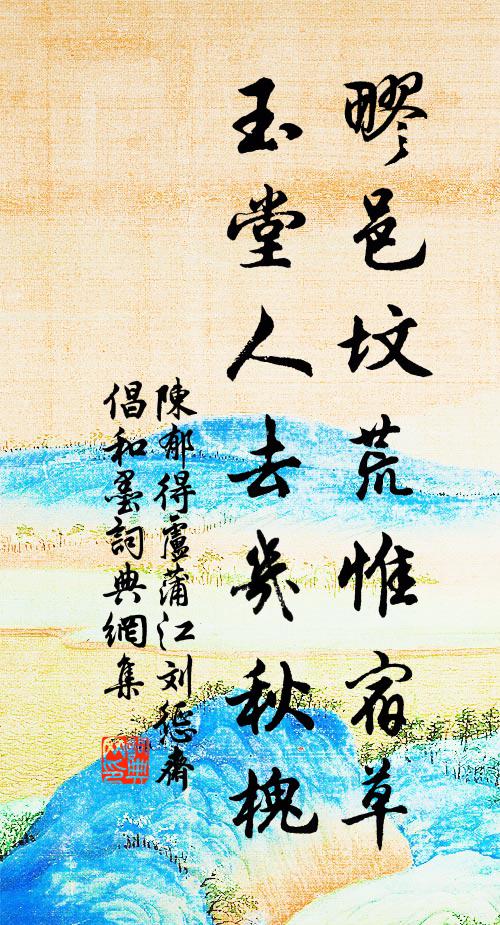 醪邑坟荒惟宿草
玉堂人去几秋槐
陳郁得盧蒲江刘㢡齋
倡和墨詞典網集